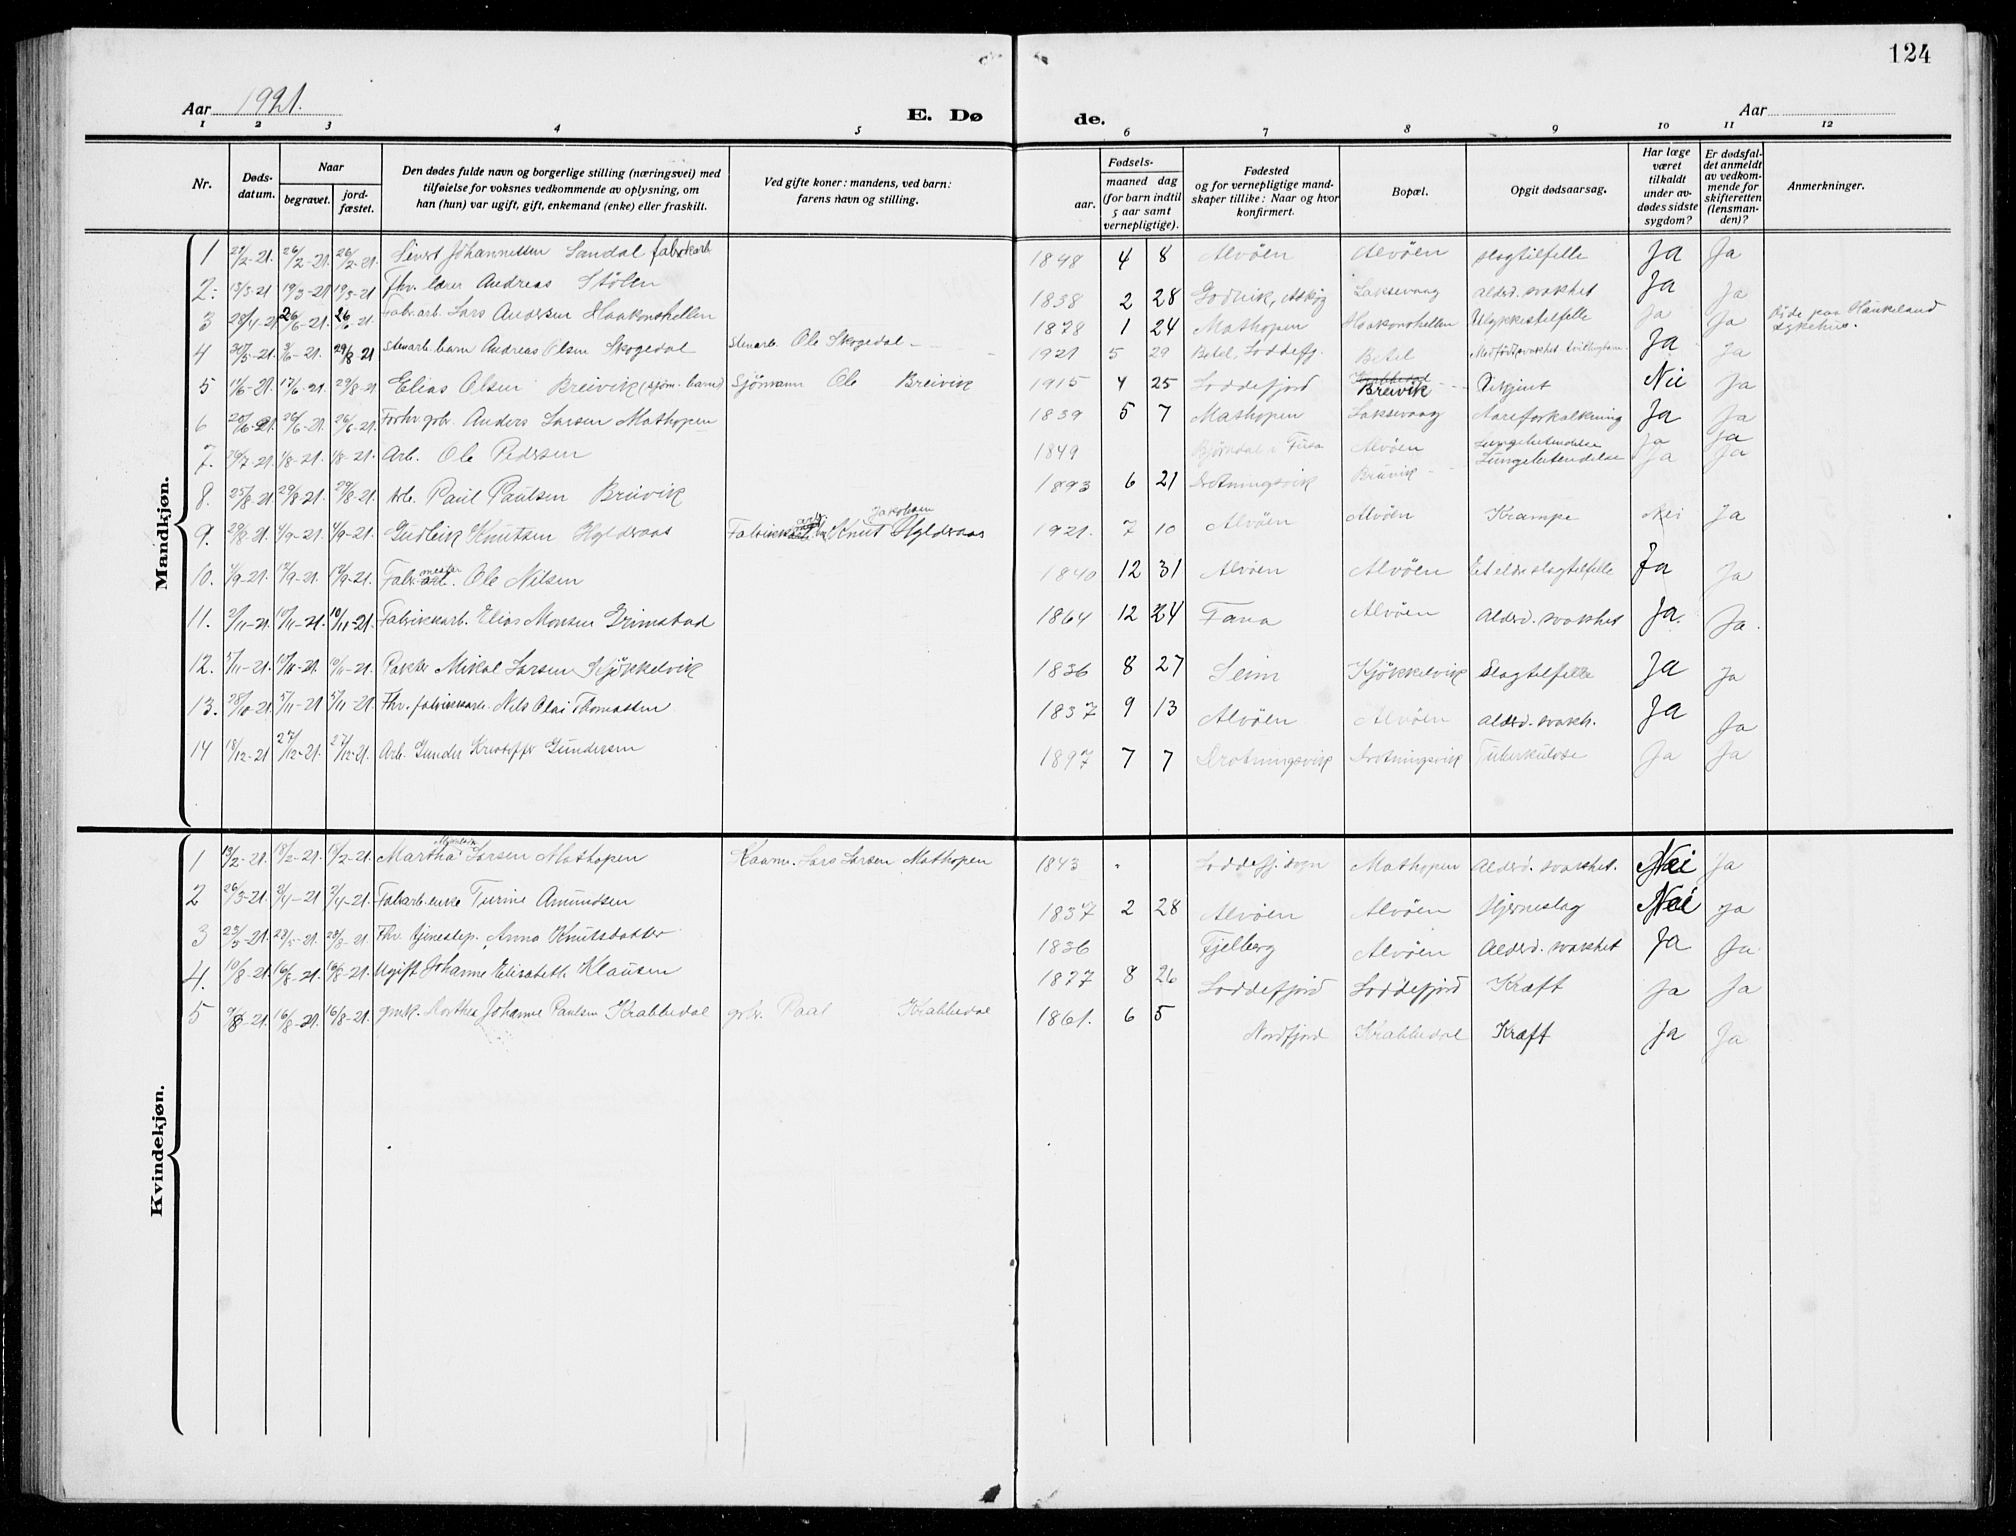 124
Aar 1921.
E. Dø de.
Aar
1 2 3 4 5 6 7 8 9 10 11 12
Nr.
Døds-datum.
Naar
begravet.
jord-fæstet.
Den dødes fulde navn og borgerlige stilling (næringsvei) med tilføielse for voksnes vedkommende av oplysning, om han (hun) var ugift, gift, enkemand (enke) eller fraskilt.
Ved gifte koner: mandens, ved barn: farens navn og stilling.
Fødsels-
aar.
maaned dag
(for barn indtil 5 aar samt vernepligtige).
Fødested og for vernepligtige mand-skaper tillike: Naar og hvor konfirmert.
Bopæl.
Opgit dødsaarsag.
Har læge været tilkaldt under av-dødes sidste sygdom?
Er dødsfal-det anmeldt av vedkom-mende for skifteretten (lensman-den)?
Anmerkninger.
Mandkjøn.
1 26/2-21. 26/2-21. Sivert Johannessen Sandal fabrikarb 1848 4 8 Alvöen Alvöen Slagtilfelle Ja Ja
2. 13/3-21 19/3-21 19/3-21 Fhv. lærer Andreas Stölen 1838 2 28 Godvik, Askøy Laksevaag Alderd. svakhet Ja Ja
3 28/4-21 26/6-21. 26/6-21 Fabr.arb. Lars Andersen Haakonshellen 1878 1 24 Mathopen Haakonshellen Ulykkestilfelle Ja Ja Döde paa Haukeland Sykehus.
4 30/5-21. 9/6-21. 29/8 21 Stenarb. barn Andreas Olsen Skogedal Stenarb. Ole Skogedal 1921 5 29 Betel, Loddefj. Betel Medfödt svakhet tvillingbarn Ja Ja
5 11/6-21. 17/6-21. 29/8-21 Elias Olsen Breivik (sjöm. barn) Sjömann Ole Breivik 1915 4 25 Loddefjord Breivik Ukjent Nei Ja
6 20/6-21. 26/6-21. 26/6-21. Forhv. grbr. Anders Larsen Mathopen 1839 5 7 Mathopen Laksevaag Aareforkalkning Ja Ja
7. 29/7-21. 1/8-21. 1/8-21. Arb. Ole Pedersen 1849 Björndal i Fusa Alvöen Lungebetendelse Ja Ja
8. 25/8-21 29/8-21. 29/8-21. Arb. Paul Paulsen Breivik 1893 6 21 Drotningsvik Breivik Lungebetendelse Ja Ja
9. 29/8-21. 4/9-21. 4/9-21. Gudleik Knutsen Hyldraas Fabrikkarb. Knut Jakobsen Hyldraas 1921. 7 10 Alvöen Alvöen Krampe Nei Ja
10. 4/9-21. 12/9-21. 12/9-21. Fabr. mester Ole Nilsen 1840 12 31 Alvöen Alvöen Et eldre slagtilfelle Ja Ja
11. 2/11-21. 10/11-21. 10/11-21. Fabrikkarb. Elias Monsen Grimstad 1864 12 24 Fana Alvöen Alderd. svakhet Ja. Ja.
12. 5/11-21. Mikal Larsen Kjökkelvik 1836 8 27 Seim Kjökkelvik Slagtilfelle Ja Ja
13. 28/10-21. 5/11-21 5/11-21. Fhv. fabrikkarb. Nils Olai Thomassen 1837 9 13 Alvöen Alvöen Alderd. svakh. Ja Ja
14 18/12-21. 27/12-21. 27/12-21. Arb. Gunder Kristoffer Gundersen 1897 7 7 Drotningsvik Drotningsvik Tuberkulose Ja Ja
Kvindekjøn.
1 13/2-21. 18/2-21. 18/2-21. Martha Larsen Mathopen Kaarm. Lars Larsen Mathopen 1843 Loddefj. sogn Mathopen Alderd. svakhet. Nei Ja
2 26/3-21. 2/4-21 2/4-21. Fabrarb. enke Turine Amundsen 1837 2 28 Alvöen Alvöen Hjerneslag Nei Ja
3 23/5-21. 28/5-21. 28/8-21. Fhv. tjenestep. Anna Knutsdatter 1836 Fjelberg Alvöen Alderd. svakhet Ja Ja
4. 10/8-21. 16/8-21. 16/8-21. Ugift Johanne Elisabeth Klausen 1877 8 26 Loddefjord Loddefjord Kræft Ja Ja
5 9/8-21. 16/8-21. 16/8-21. grmk. Marthea Johanne Paulsen Krabbedal grbr. Paal Krabbedal 1861. 6 5 Nordfjord Krabbedal Kræft Ja Ja